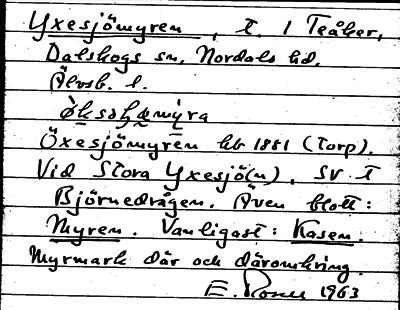 Yxesjömyren, t. I Teåker,
Dalskogs sn, Nordals hd,
Älvsb. l.
Öxesjömyren hb 1881 (torp).
Vid Stora Yxesjö(n), SV t
Björnedrägen. Även blott:
Myren. Vanligast: Kasen.
Myrmark där och däromkring.
E. 1963